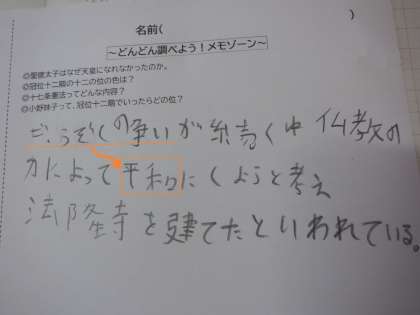 名前(　　　)
～どんどん調べよう！メモゾーン～
◎聖徳太子はなぜ天皇になれなかったのか。
◎冠位十二階の十二の位の色は？
◎十七条憲法ってどんな内容？
◎小野妹子って、冠位十二階でいったらどの位？
ごうぞくの争いが続く中 仏教の
力によって平和にしようと考え
法隆寺を建てたといわれている。